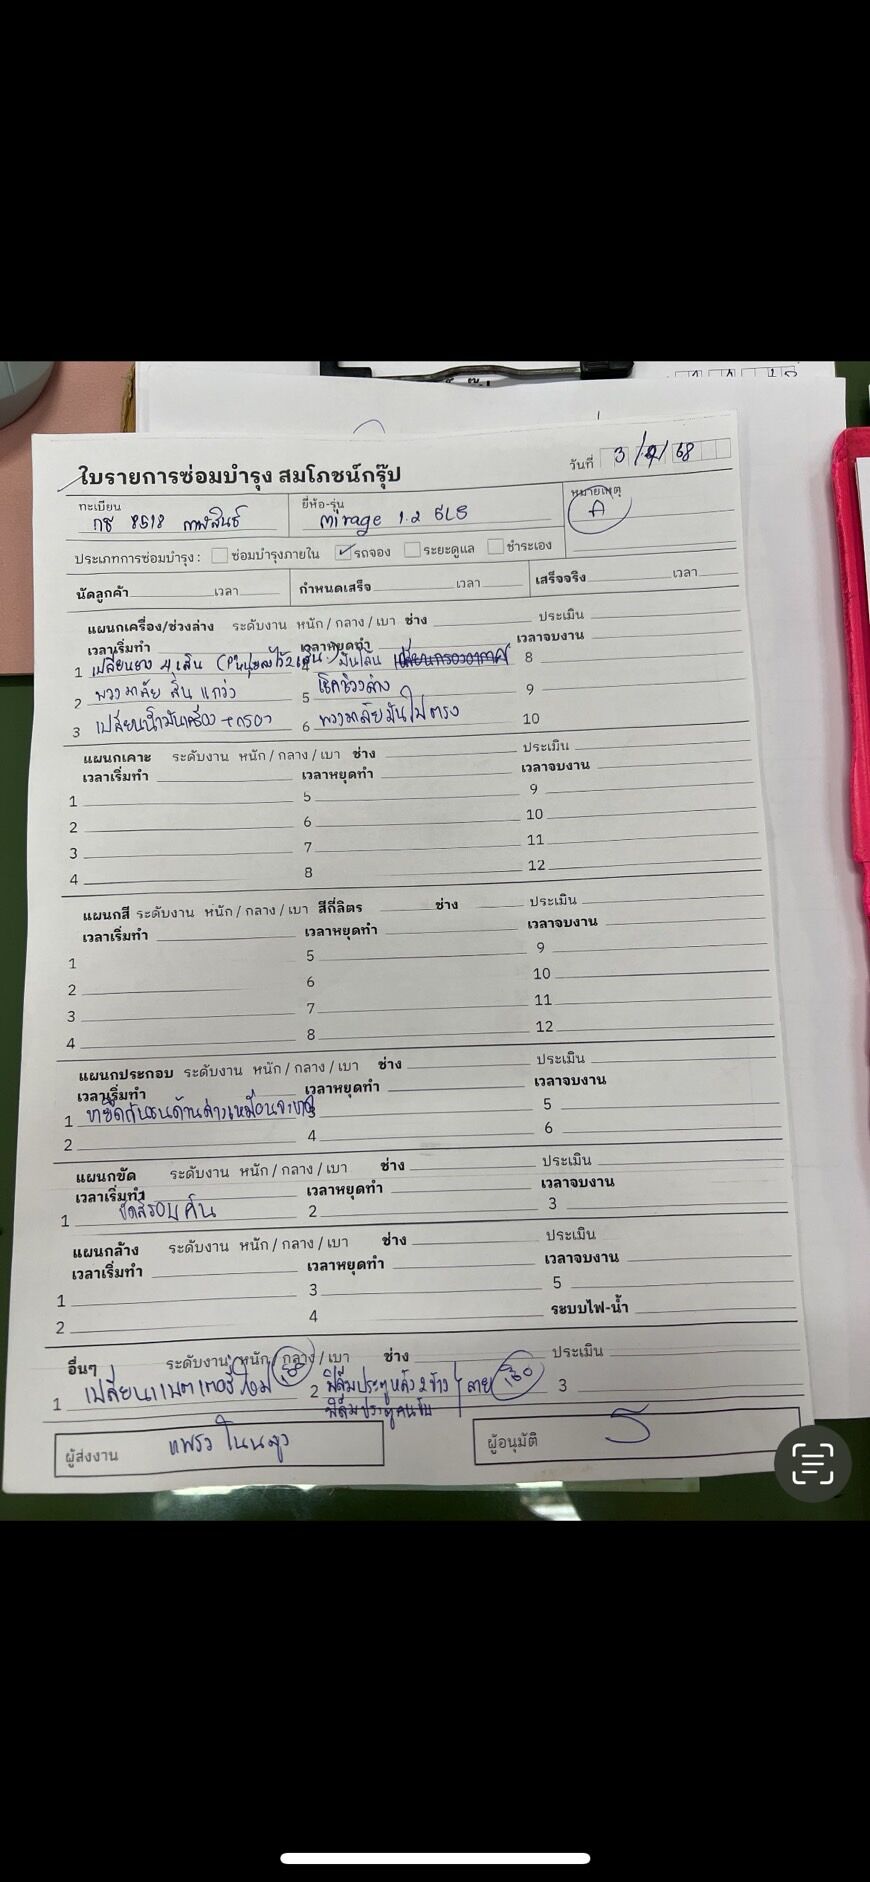 ใบรายการซ่อมบำรุง สมโภชน์กรุ๊ป
วันที่ 3/ /68
ทะเบียน กธ 8518 กาฬสินธุ์
ยี่ห้อ-รุ่น mirage 1.2 GLS
หมายเหตุ A
ประเภทการซ่อมบำรุง : ซ่อมบำรุงภายใน รถจอง ระยะดูแล ชำระเอง
นัดลูกค้า เวลา กำหนดเสร็จ เวลา เสร็จจริง เวลา
แผนกเครื่อง/ช่วงล่าง ระดับงาน หนัก / กลาง / เบา ช่าง ประเมิน
เวลาเริ่มทำ เวลาหยุดทำ เวลาจบงาน
1 เปลี่ยนยาง 4 เส้น 4 8
2 พวงมาลัย สั่น แกว่ง 5 เช็คช่วงล่าง 9
3 เปลี่ยนน้ำมันเครื่อง + กรอง 6 พวงมาลัยมันไม่ตรง 10
แผนกเคาะ ระดับงาน หนัก / กลาง / เบา ช่าง ประเมิน
เวลาเริ่มทำ เวลาหยุดทำ เวลาจบงาน
1 5 9
2 6 10
3 7 11
4 8 12
แผนกสี ระดับงาน หนัก / กลาง / เบา สีกี่ลิตร ช่าง ประเมิน
เวลาเริ่มทำ เวลาหยุดทำ เวลาจบงาน
1 5 9
2 6 10
3 7 11
4 8 12
แผนกประกอบ ระดับงาน หนัก / กลาง / เบา ช่าง ประเมิน
เวลาเริ่มทำ เวลาหยุดทำ เวลาจบงาน
1 ขายึดกันชนด้านล่างเหมือนจะขาด 3 5
2 4 6
แผนกขัด ระดับงาน หนัก / กลาง / เบา ช่าง ประเมิน
เวลาเริ่มทำ เวลาหยุดทำ เวลาจบงาน
1 ขัดสีรอบคัน 2 3
แผนกล้าง ระดับงาน หนัก / กลาง / เบา ช่าง ประเมิน
เวลาเริ่มทำ เวลาหยุดทำ เวลาจบงาน
1 3 5
2 4 ระบบไฟ-น้ำ
อื่นๆ ระดับงาน หนัก / กลาง / เบา ช่าง ประเมิน
1 เปลี่ยนแบตเตอรี่ใหม่ 2 ฟิล์มประตูหลัง 2 ข้าง ลาย 3
ฟิล์มประตูคนขับ
ผู้ส่งงาน แพรว โนนสูง ผู้อนุมัติ